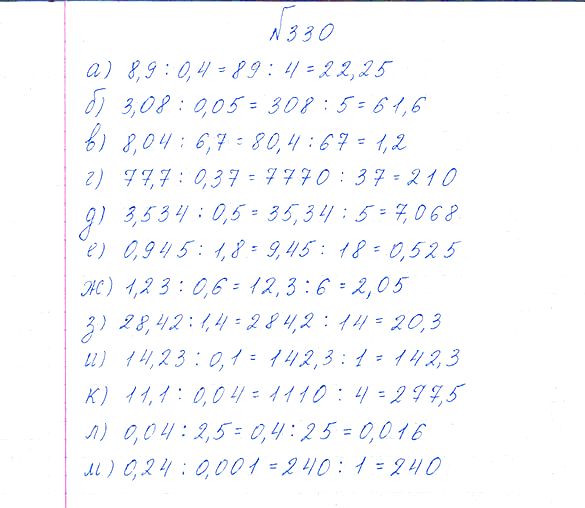 №330
а) 8,9 : 0,4 = 89 : 4 = 22,25
б) 3,08 : 0,05 = 308 : 5 = 61,6
в) 8,04 : 6,7 = 80,4 : 67 = 1,2
г) 77,7 : 0,37 = 7770 : 37 = 210
д) 3,534 : 0,5 = 35,34 : 5 = 7,068
е) 0,945 : 1,8 = 9,45 : 18 = 0,525
ж) 1,23 : 0,6 = 12,3 : 6 = 2,05
з) 28,42 : 1,4 = 284,2 : 14 = 20,3
и) 14,23 : 0,1 = 142,3 : 1 = 142,3
к) 11,1 : 0,04 = 1110 : 4 = 277,5
л) 0,04 : 2,5 = 0,4 : 25 = 0,016
м) 0,24 : 0,001 = 240 : 1 = 240